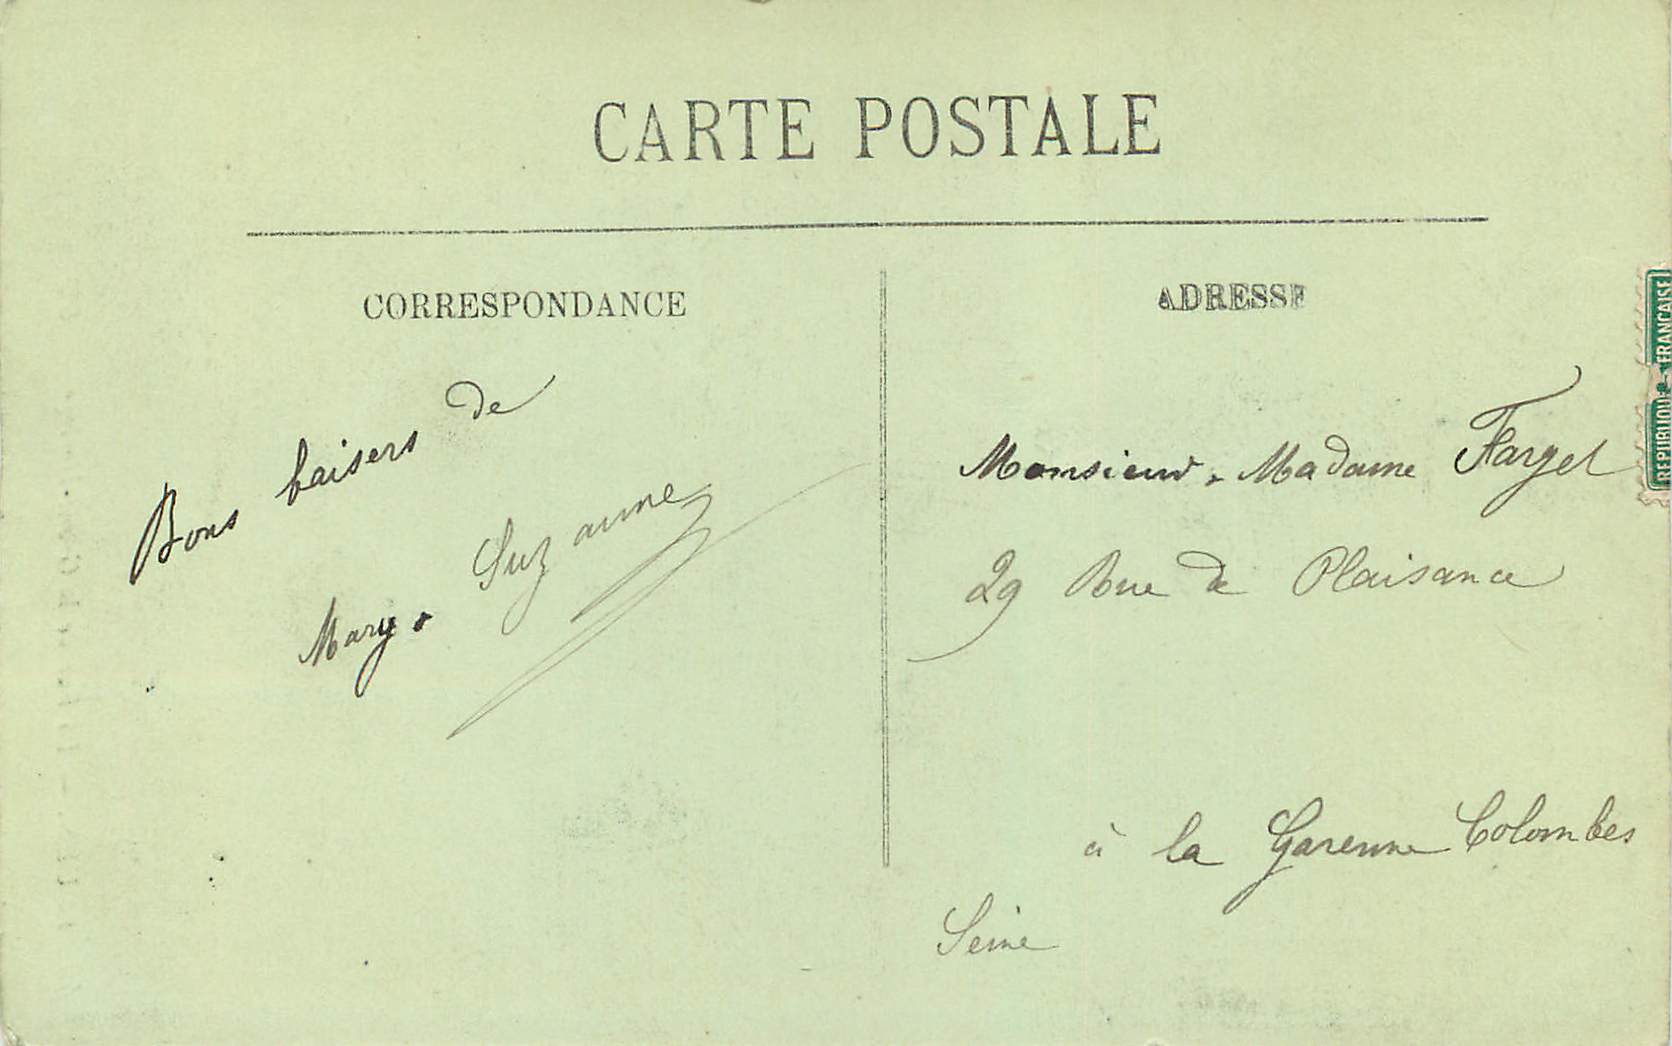 CARTE POSTALE
CORRESPONDANCE
Bons baisers de
Mary. Suzanne
ADRESSE
Monsieur. Madame Farget
29 Rue de Plaisance
à la Garenne Colombes
Seine
REPUBLIQUE FRANCAISE